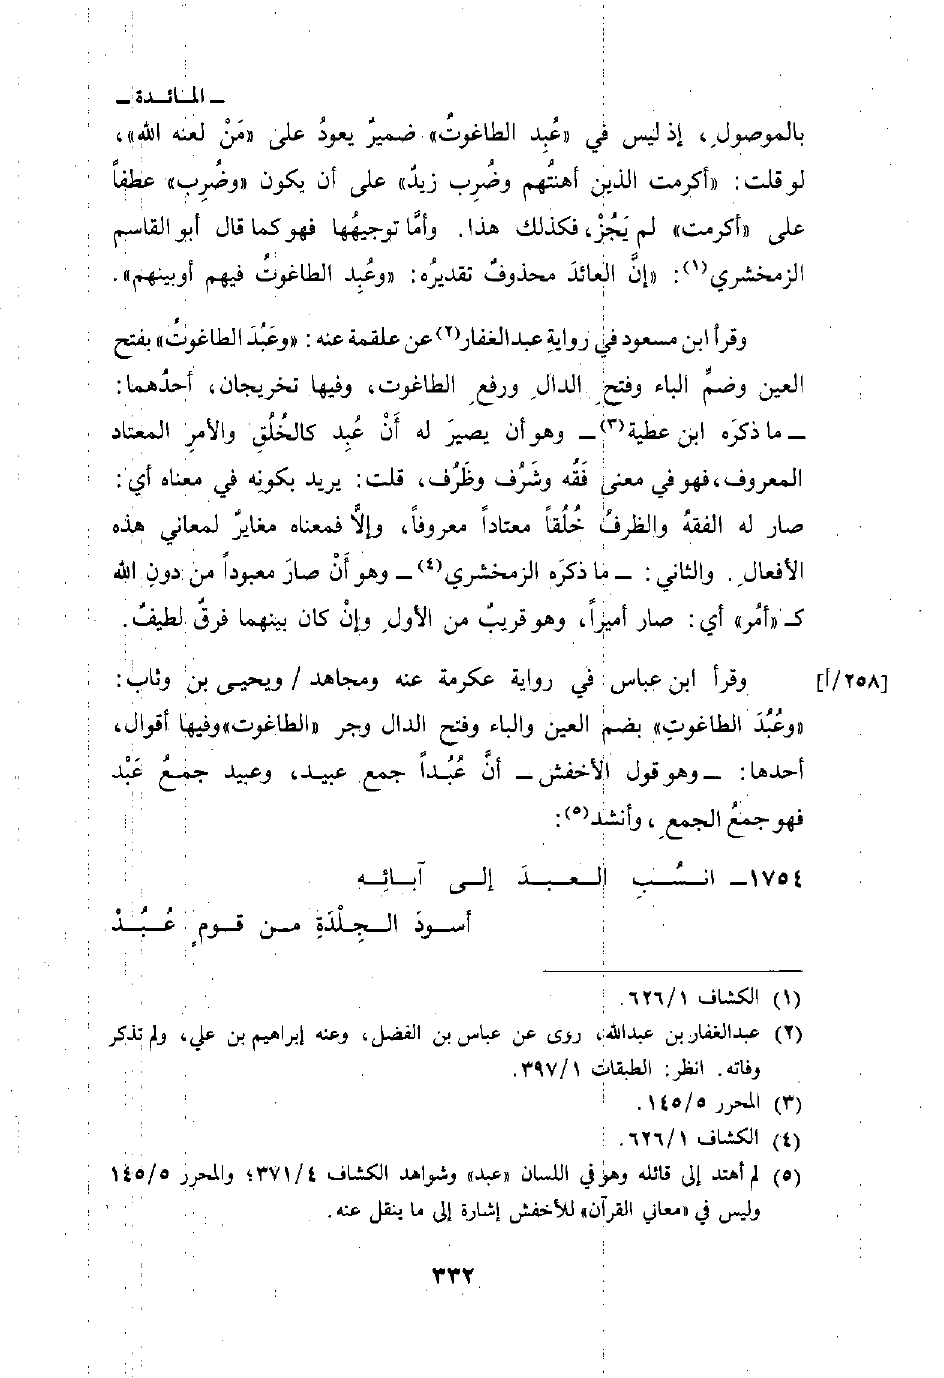 ـ المـائـدة ـ
بالموصولِ، إذ ليس في «عُبِد الطاغوتُ» ضميرٌ يعودُ على «مَنْ لعنه الله»،
لو قلت: «أكرمت الذين أهنتُهم وضُرِب زيدٌ» على أن يكون «وضُرِب» عطفاً
على «أكرمت» لم يَجُزْ، فكذلك هذا. وأمَّا توجيهُها فهو كما قال أبو القاسم
الزمخشري(١): «إنَّ العائدَ محذوفٌ تقديرُه: «وعُبِد الطاغوتُ فيهم أو بينهم».
وقرأ ابن مسعود في روايةِ عبدالغفار(٢) عن علقمة عنه: «وعَبُدَ الطاغوتُ» بفتح
العين وضمِّ الباء وفتحِ الدالِ ورفعِ الطاغوت، وفيها تخريجان، أحدُهما:
ـ ما ذكرَه ابن عطية(٣) ـ وهو أن يصيرَ له أَنْ عُبِد كالخُلُقِ والأمرِ المعتاد
المعروف، فهو في معنى فَقُه وشَرُف وظَرُف، قلت: يريد بكونِه في معناه أي:
صار له الفقهُ والظرفُ خُلُقاً معتاداً معروفاً، وإلاَّ فمعناه مغايرٌ لمعاني هذه
الأفعالِ. والثاني: ـ ما ذكرَه الزمخشري(٤) ـ وهو أَنْ صارَ معبوداً من دونِ الله
كـ «أمُر» أي: صار أميراً، وهو قريبٌ من الأولِ وإنْ كان بينهما فرقٌ لطيفٌ.
[٢٥٨/أ] وقرأ ابن عباس في رواية عكرمة عنه ومجاهد / ويحيـى بن وثاب:
«وعُبُدَ الطاغوتِ» بضم العين والباء وفتح الدال وجر «الطاغوت» وفيها أقوال،
أحدها: ـ وهو قول الأخفش ـ أنَّ عُبُداً جمع عبيد، وعبيد جمعُ عَبْد
فهو جمعُ الجمعِ، وأنشد(٥):
١٧٥٤ـ انـسُـبِ الـعـبـدَ إلـى آبـائِـه
أسـودَ الـجِلْدَةِ مـن قـومٍ عُـبُـدْ
(١) الكشاف ٦٢٦/١.
(٢) عبدالغفار بن عبدالله، روى عن عباس بن الفضل، وعنه إبراهيم بن علي، ولم تذكر
وفاته. انظر: الطبقات ٣٩٧/١.
(٣) المحرر ١٤٥/٥.
(٤) الكشاف ٦٢٦/١.
(٥) لم أهتد إلى قائله وهو في اللسان «عبد» وشواهد الكشاف ٣٧١/٤؛ والمحرر ١٤٥/٥
وليس في «معاني القرآن» للأخفش إشارة إلى ما ينقل عنه.
٣٣٢